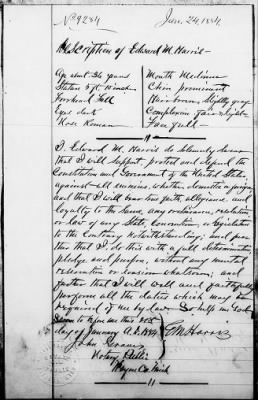 No 9284
Jan. 24, 1884
Description of Edward M. Harris-
Age about 36 years
Stature 5 ft. 10 inch
Forehead Full
Eyes dark
Nose Roman
Mouth Medium
Chin prominent
Hair brown Slightly gray
Complexion fair & light
Face full-
I, Edward M. Harris do solemnly swear
that I will support, protect and defend the
Constitution and Government of the United States
against all enemies, whether domestic or foreign
and that I will bear true faith, allegiance, and
loyalty to the same, any ordinance, resolution
or law of any State Convention, or Legislature
to the Contrary notwithstanding; and fur
ther that I do this with a full determination
pledge and purpose, without any mental
reservation or evasion whatsoever; and
further that I will well and faithfully
perform all the duties which may be
required of me by law. So help me God.
Sworn to before me this
day of January A.D. 1884
E M Harris
John
Notary Public
Wayne Co. Mich
11